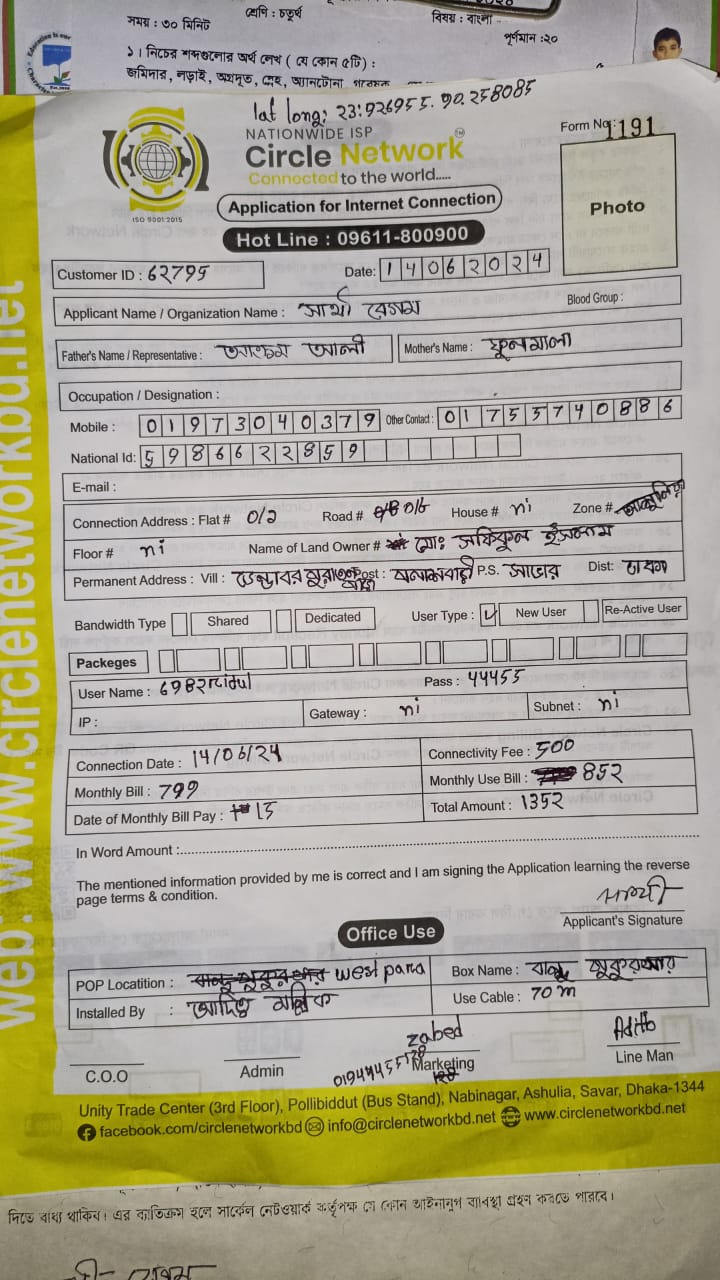 সময় : ৩০ মিনিট
শ্রেণি : চতুর্থ
বিষয় : বাংলা
পূর্ণমান : ২০
১। নিচের শব্দগুলোর অর্থ লেখ ( যে কোন ৫টি ) :
জমিদার, লড়াই,
lat long: 23:926955. 90.258085
NATIONWIDE ISP
Circle Network
Connected to the world.....
ISO 9001:2015
Form No: 1191
Photo
Application for Internet Connection
Hot Line : 09611-800900
Customer ID : 62795
Date: 14062024
Applicant Name / Organization Name : সাথী বেগম
Blood Group :
Father's Name / Representative : আলী
Mother's Name : ফুলমালা
Occupation / Designation :
Mobile : 01973040379 Other Contact : 01755740886
National Id: 5986622859
E-mail :
Connection Address : Flat # 0/2 Road # 016 House # ni Zone #
Floor # ni Name of Land Owner # মোঃ সফিকুল ইসলাম
Permanent Address : Vill : Post : P.S. সাভার Dist: ঢাকা
Bandwidth Type Shared Dedicated User Type : New User Re-Active User
Packeges
User Name : Pass : 44455
IP : Gateway : ni Subnet : ni
Connection Date : 14/06/24 Connectivity Fee : 500
Monthly Bill : 799 Monthly Use Bill : 852
Date of Monthly Bill Pay : 15 Total Amount : 1352
In Word Amount :
The mentioned information provided by me is correct and I am signing the Application learning the reverse
page terms & condition.
সাথী
Applicant's Signature
Office Use
POP Locatition : west para Box Name :
Installed By : Use Cable : 70 m
zabed
Aditto
C.O.O Admin Marketing Line Man
Unity Trade Center (3rd Floor), Pollibiddut (Bus Stand), Nabinagar, Ashulia, Savar, Dhaka-1344
facebook.com/circlenetworkbd info@circlenetworkbd.net www.circlenetworkbd.net
web: www.circlenetworkbd.net
দিতে বাধ্য থাকিব। এর ব্যতিক্রম হলে সার্কেল নেটওয়ার্ক কর্তৃপক্ষ যে কোন আইনানুগ ব্যবস্থা গ্রহণ করতে পারবে।